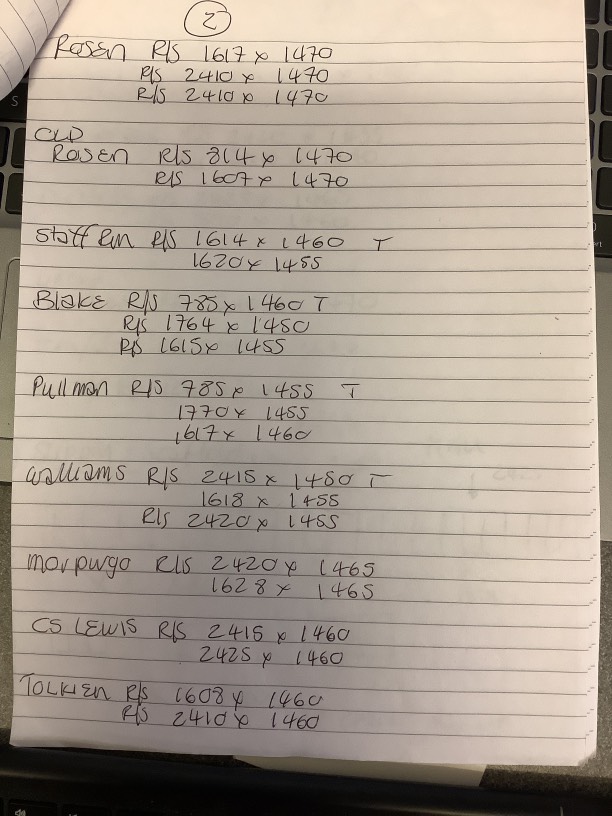 2
Rosen R/S 1617 x 1470
R/S 2410 x 1470
R/S 2410 x 1470
CLD
Rosen R/S 814 x 1470
R/S 1607 x 1470
Staff Rm R/S 1614 x 1460 T
1620 x 1455
Blake R/S 785 x 1460 T
R/S 1764 x 1450
R/S 1615 x 1455
Pullman R/S 785 x 1455 T
1770 x 1455
1617 x 1460
Walliams R/S 2415 x 1450 T
1618 x 1455
R/S 2420 x 1455
Morpurgo R/S 2420 x 1465
1628 x 1465
CS LEWIS R/S 2415 x 1460
2425 x 1460
TOLKIEN R/S 1608 x 1460
R/S 2410 x 1460